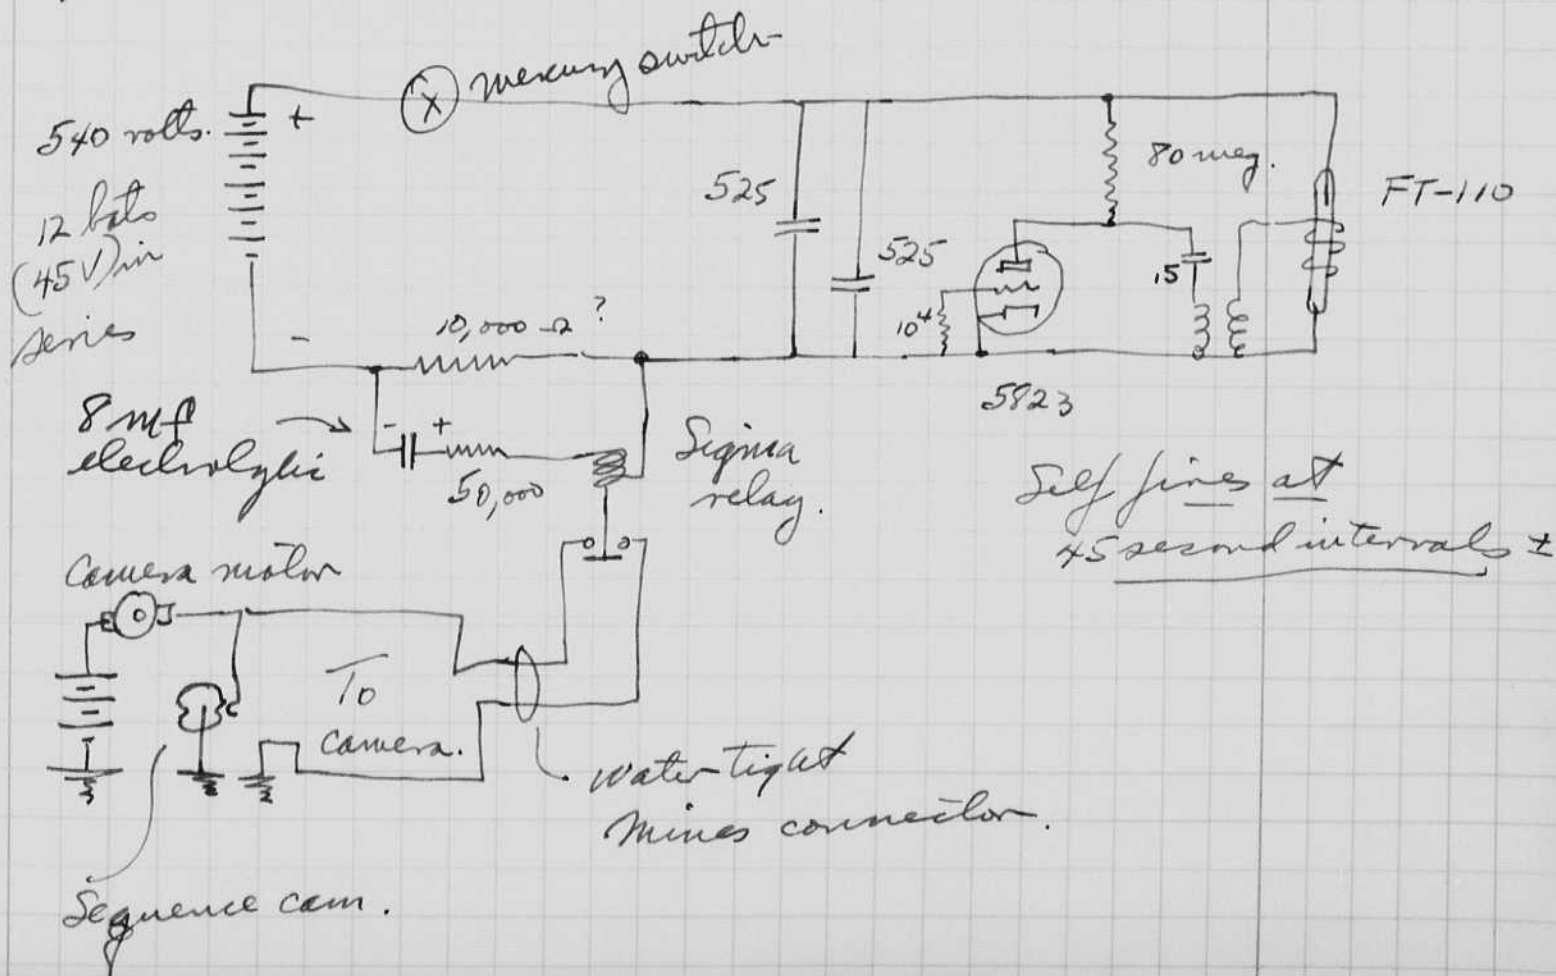 mercury switch
540 volts.
+
12 bats
(45V) in
series
-
525
525
80 meg.
FT-110
.5
10⁴
5823
10,000 Ω ?
8 mf
electrolytic
- +
50,000
Sigma
relay.
Self fires at
45 second intervals ±
Camera motor
To
camera.
water tight
Mines connector.
Sequence cam.